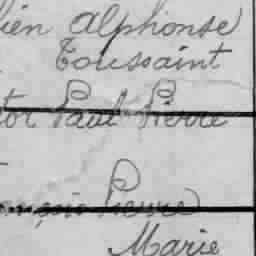 ien Alphonse
Toussaint
tor Paul Pierre
ançois Pierre
Marie